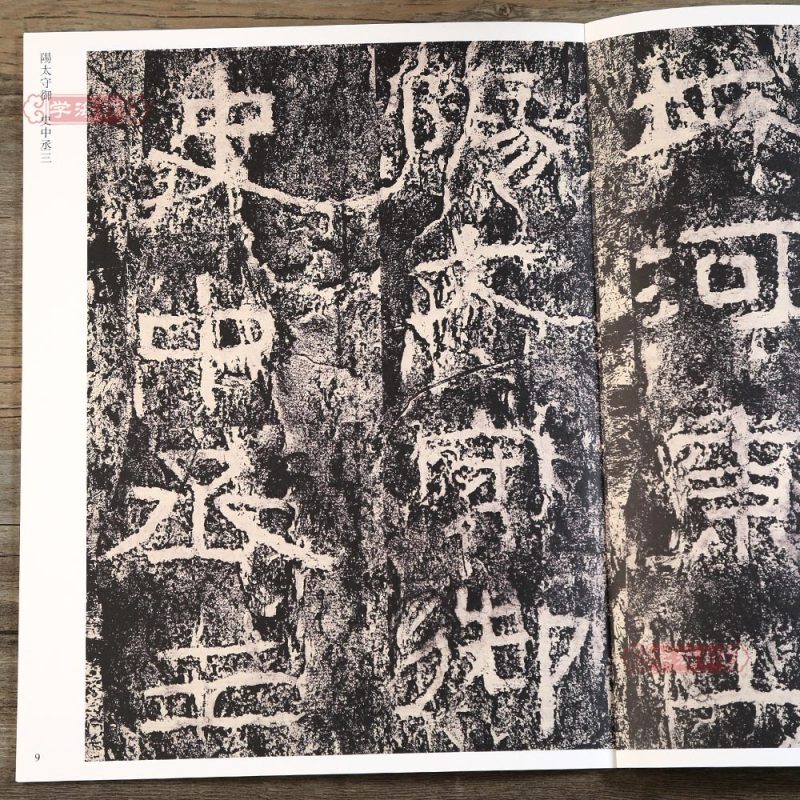 河東
陽太守御
史中丞三
陽太守御
史中丞三
9